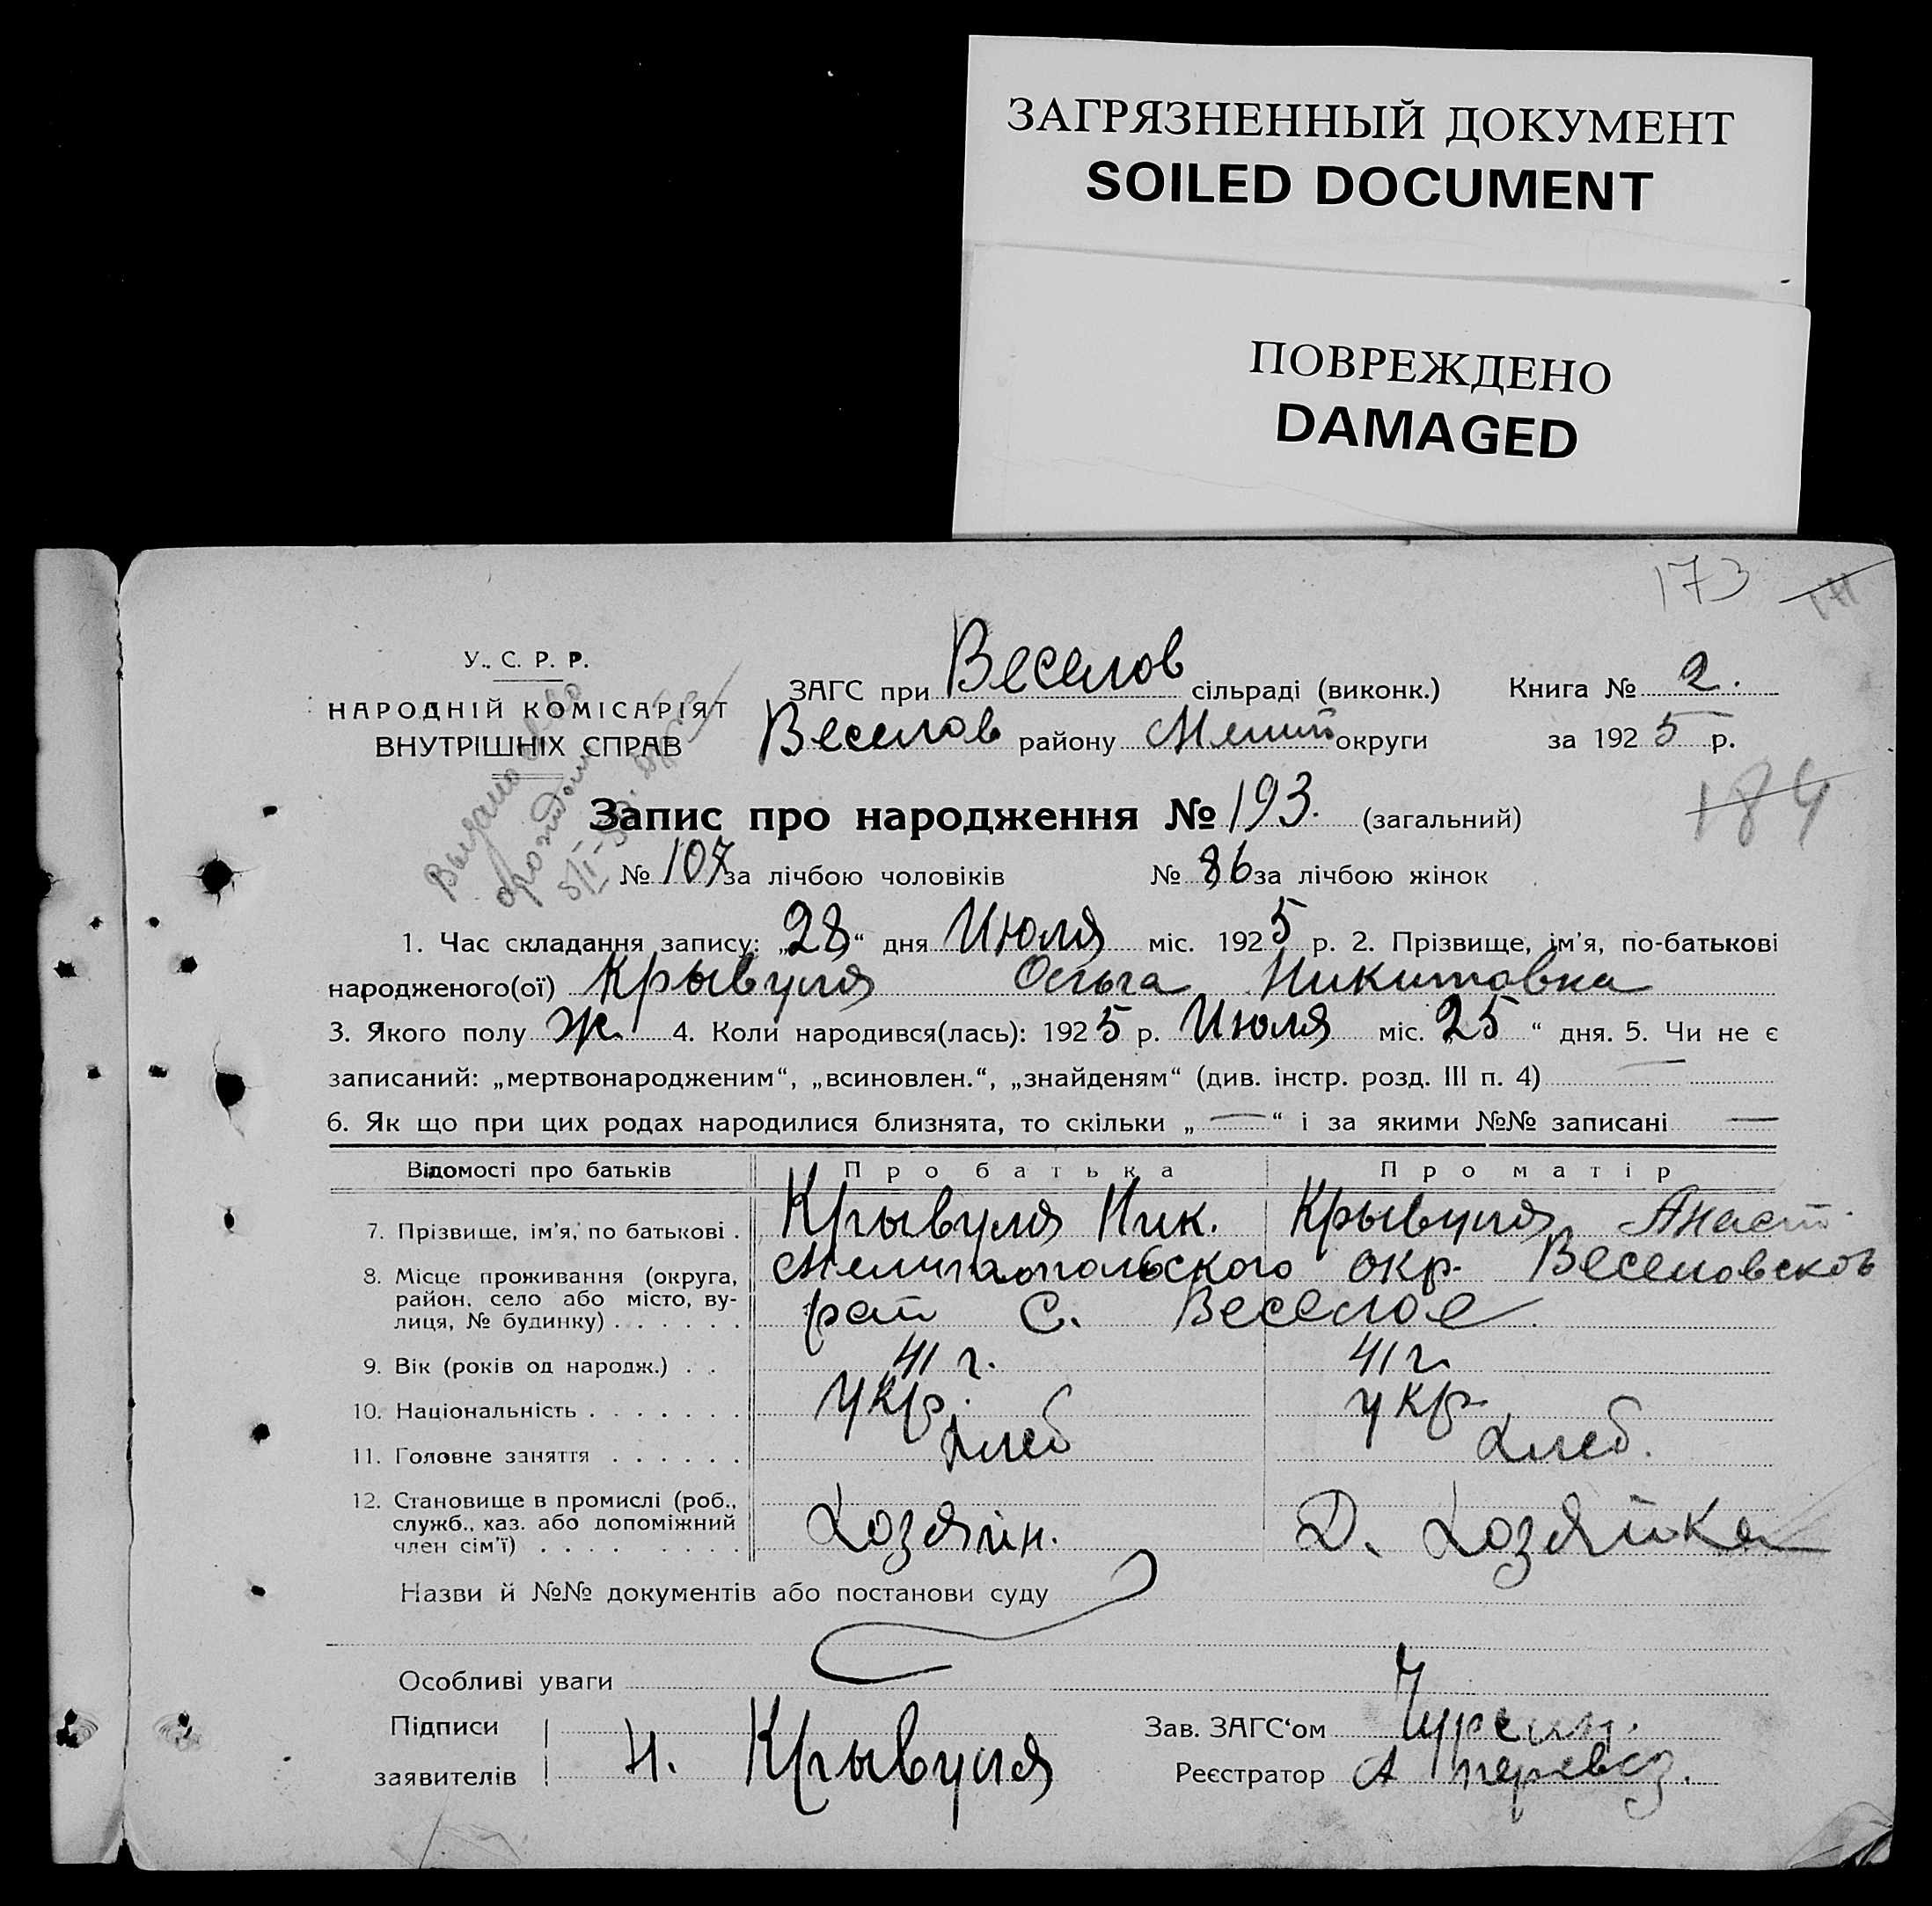 ЗАГРЯЗНЕННЫЙ ДОКУМЕНТ
SOILED DOCUMENT
ПОВРЕЖДЕНО
DAMAGED
173
У. С. Р. Р.
НАРОДНІЙ КОМІСАРІЯТ
ВНУТРІШНІХ СПРАВ
ЗАГС при Веселов сільраді (виконк.) Книга № 2.
Веселов району Мелит округи за 1925 р.
Запис про народження № 193. (загальний)
184
№ 107 за лічбою чоловіків № 86 за лічбою жінок
1. Час складання запису: „28“ дня Июля міс. 1925 р. 2. Прізвище, ім’я, по-батькові
народженого(ої) Крывуля Ольга Никитовна
3. Якого полу ж. 4. Коли народився(лась): 1925 р. Июля міс. 25 “ дня. 5. Чи не є
записаний: „мертвонародженим“, „всиновлен.“, „знайденям“ (див. інстр. розд. III п. 4) —
6. Як що при цих родах народилися близнята, то скільки „ — “ і за якими №№ записані —
Відомості про батьків Про батька Про матір
7. Прізвище, ім’я, по батькові . Крывуля Ник. Крывуля Анаст.
8. Місце проживання (округа, Мелитопольского окр. Веселовсков
район, село або місто, ву-
лиця, № будинку) . . . . . . рай С. Веселое
9. Вік (років од народж.) . . 41 г. 41 г.
10. Національність . . . . . . . укр. укр.
11. Головне заняття . . . . . . хлеб хлеб.
12. Становище в промислі (роб.,
служб., хаз. або допоміжний Хозяин. Д. Хозяйка
член сім’ї) . . . . . . . .
Назви й №№ документів або постанови суду
Особливі уваги
Підписи Зав. ЗАГС‘ом
заявителів Н. Крывуля Реєстратор А Перевоз.